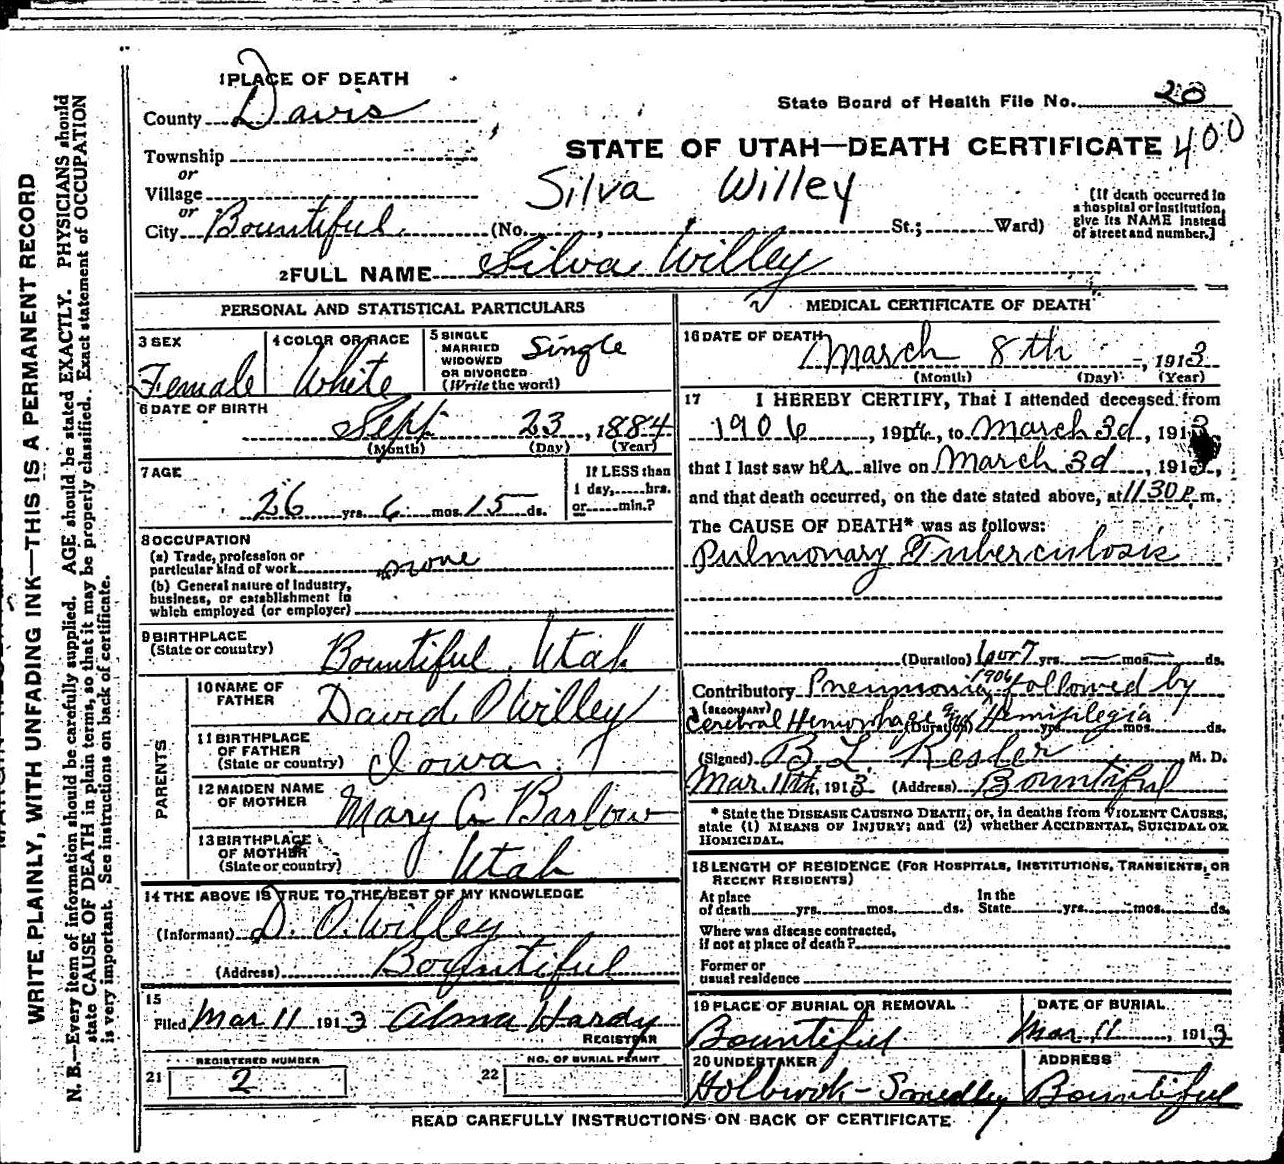 1 PLACE OF DEATH
County Davis
State Board of Health File No. 20
Township
or
STATE OF UTAH—DEATH CERTIFICATE 400
Village
or
Silva Willey
City Bountiful (No. , St.; Ward)
[If death occurred in
a hospital or institution,
give its NAME instead
of street and number.]
2 FULL NAME Silva Willey
PERSONAL AND STATISTICAL PARTICULARS
3 SEX
Female
4 COLOR OR RACE
White
5 SINGLE
MARRIED
WIDOWED
OR DIVORCED
(Write the word)
Single
6 DATE OF BIRTH
Sept 23, 1884
(Month) (Day) (Year)
7 AGE
26 yrs. 6 mos. 15 ds.
If LESS than
1 day, hrs.
or min.?
8 OCCUPATION
(a) Trade, profession or
particular kind of work none
(b) General nature of Industry,
business, or establishment in
which employed (or employer)
9 BIRTHPLACE
(State or country)
Bountiful, Utah
PARENTS
10 NAME OF
FATHER
David O Willey
11 BIRTHPLACE
OF FATHER
(State or country)
Iowa
12 MAIDEN NAME
OF MOTHER
Mary A Barlow
13 BIRTHPLACE
OF MOTHER
(State or country)
Utah
14 THE ABOVE IS TRUE TO THE BEST OF MY KNOWLEDGE
(Informant) D. O. Willey
(Address) Bountiful
15
Filed Mar 11 1913 Alma Hardy
REGISTRAR
REGISTERED NUMBER
21 2
NO. OF BURIAL PERMIT
22
MEDICAL CERTIFICATE OF DEATH
16 DATE OF DEATH
March 8th, 1913
(Month) (Day) (Year)
17 I HEREBY CERTIFY, That I attended deceased from
1906, 19, to March 3d, 191
that I last saw her alive on March 3d, 191
and that death occurred, on the date stated above, at 11 30 P. m.
The CAUSE OF DEATH* was as follows:
Pulmonary Tuberculosis
(Duration) 6 or 7 yrs. — mos. — ds.
Contributory Pneumonia 1906 followed by
(SECONDARY)
Cerebral Hemorhage and Hemiplegia
(Duration) yrs. mos. ds.
(Signed) B. L. Kesler M. D.
Mar. 11th, 1913 (Address) Bountiful
* State the DISEASE CAUSING DEATH, or, in deaths from VIOLENT CAUSES,
state (1) MEANS OF INJURY; and (2) whether ACCIDENTAL, SUICIDAL OR
HOMICIDAL.
18 LENGTH OF RESIDENCE (FOR HOSPITALS, INSTITUTIONS, TRANSIENTS, OR
RECENT RESIDENTS)
At place
of death yrs. mos. ds.
In the
State yrs. mos. ds.
Where was disease contracted,
if not at place of death?
Former or
usual residence
19 PLACE OF BURIAL OR REMOVAL
Bountiful
DATE OF BURIAL
Mar, 11, 1913
20 UNDERTAKER
Holbrook-Smedley
ADDRESS
Bountiful
READ CAREFULLY INSTRUCTIONS ON BACK OF CERTIFICATE
WRITE PLAINLY, WITH UNFADING INK—THIS IS A PERMANENT RECORD
N. B.—Every item of information should be carefully supplied. AGE should be stated EXACTLY. PHYSICIANS should
state CAUSE OF DEATH in plain terms, so that it may be properly classified. Exact statement of OCCUPATION
is very important. See instructions on back of certificate.